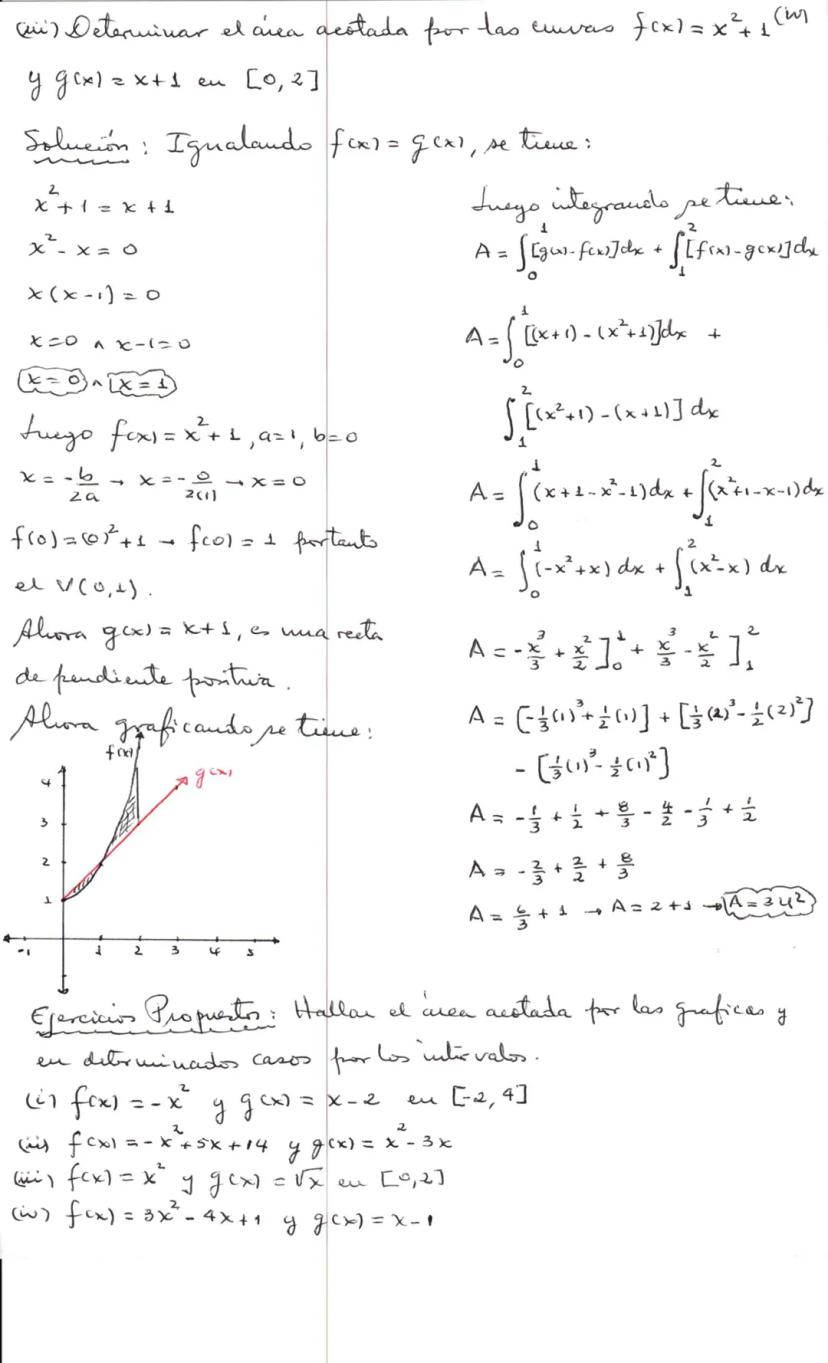 (iii) Determinar el área acotada por las curvas f(x) = x² + 1 (iv)
y g(x) = x + 1 en [0, 2]
Solución: Igualando f(x) = g(x), se tiene:
x² + 1 = x + 1
x² - x = 0
x(x - 1) = 0
x = 0 ∧ x - 1 = 0
x = 0 ∧ x = 1
Luego f(x) = x² + 1, a = 1, b = 0
x = -b/2a → x = -0/2(1) → x = 0
f(0) = (0)² + 1 → f(0) = 1 por tanto
el V(0, 1).
Ahora g(x) = x + 1, es una recta
de pendiente positiva.
Ahora graficando se tiene:
f(x)
g(x)
4
3
2
1
-1 1 2 3 4 5
Luego integrando se tiene:
A = ∫₀¹ [g(x) - f(x)]dx + ∫₁² [f(x) - g(x)]dx
A = ∫₀¹ [(x+1) - (x²+1)]dx +
∫₁² [(x²+1) - (x+1)] dx
A = ∫₀¹ (x + 1 - x² - 1)dx + ∫₁² (x² + 1 - x - 1)dx
A = ∫₀¹ (-x² + x) dx + ∫₁² (x² - x) dx
A = -x³/3 + x²/2 ]₀¹ + x³/3 - x²/2 ]₁²
A = [-1/3(1)³ + 1/2(1)] + [1/3(2)³ - 1/2(2)²]
- [1/3(1)³ - 1/2(1)²]
A = -1/3 + 1/2 + 8/3 - 4/2 - 1/3 + 1/2
A = -2/3 + 2/2 + 8/3
A = 6/3 + 1 → A = 2 + 1 → A = 3 u²
Ejercicios Propuestos: Hallar el área acotada por las graficas y
en determinados casos por los intervalos.
(i) f(x) = -x² y g(x) = x - 2 en [-2, 4]
(ii) f(x) = -x² + 5x + 14 y g(x) = x² - 3x
(iii) f(x) = x² y g(x) = √x en [0, 2]
(iv) f(x) = 3x² - 4x + 1 y g(x) = x - 1